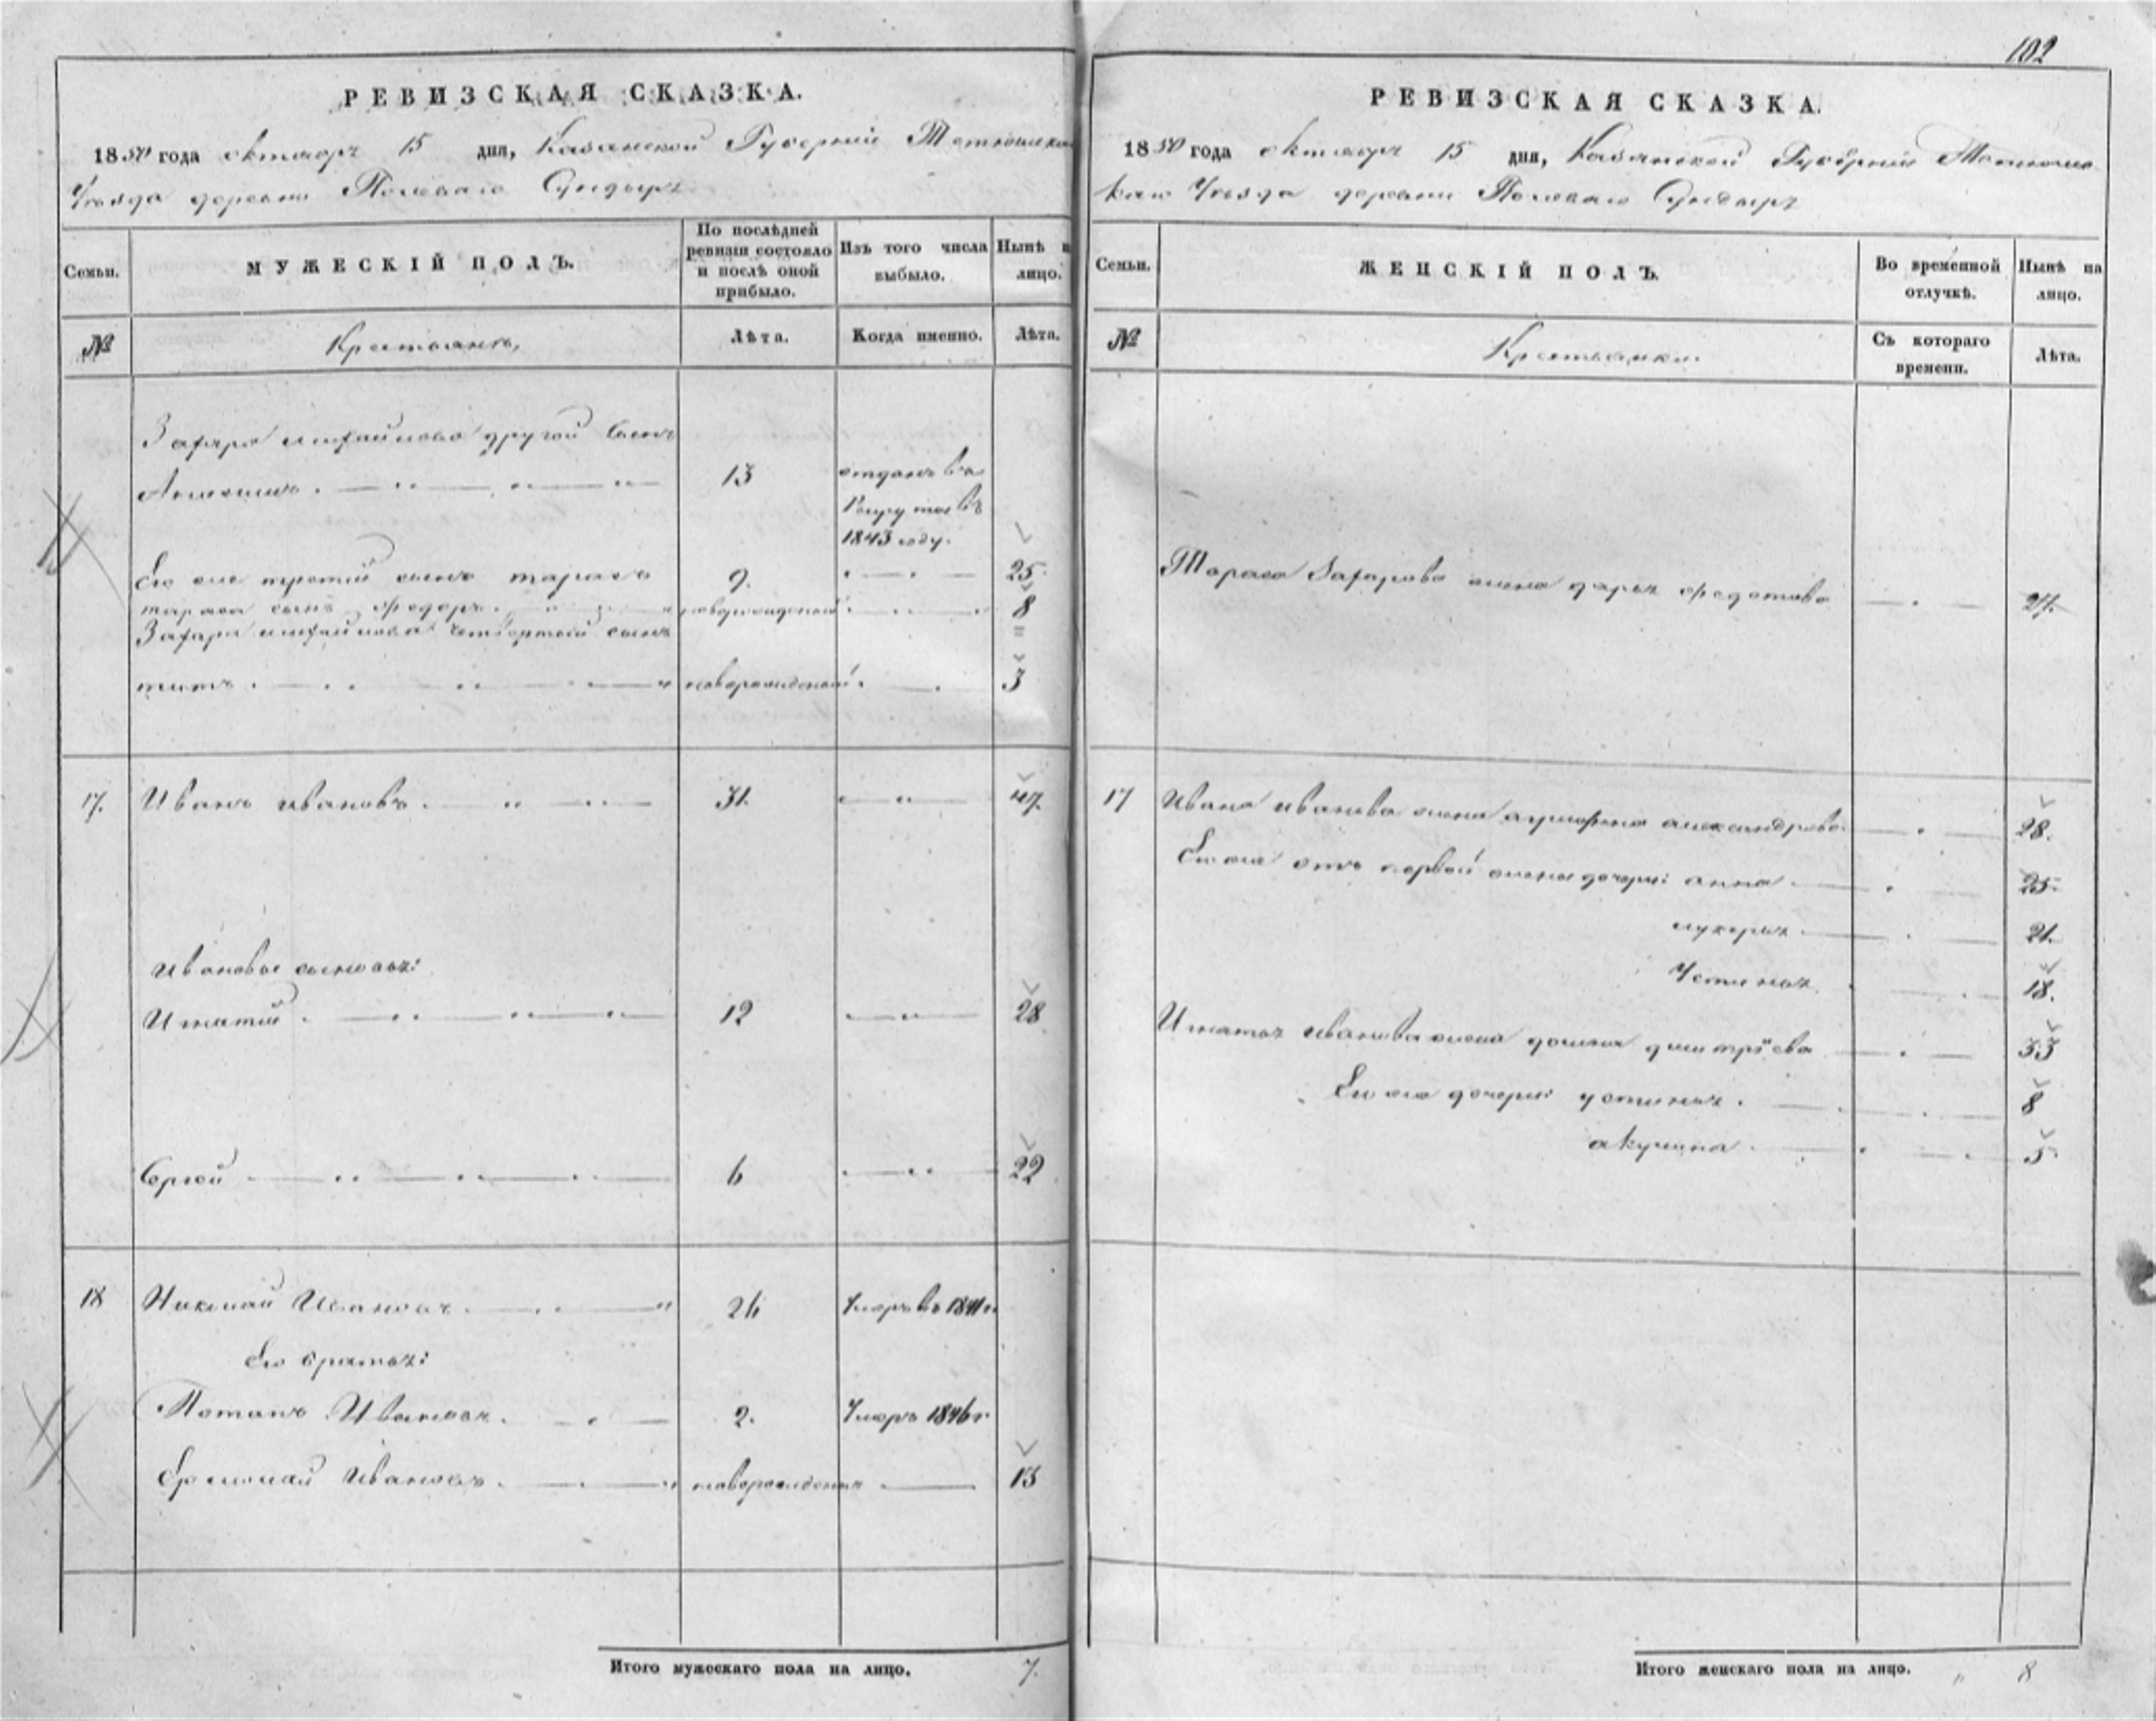 102
РЕВИЗСКАЯ СКАЗКА.
1850 года октября 15 дня, Казанской Губернии Тетюшска
Уезда деревни Полеваго Сундыря
Семьи.
МУЖЕСКІЙ ПОЛЪ.
По послѣдней ревизіи состояло и послѣ оной прибыло.
Изъ того числа выбыло.
Нынѣ на лицо.
№
Крестьянъ,
Лѣта.
Когда именно.
Лѣта.
Захара другой сынъ
13
отданъ въ
Рекруты въ
1843 году.
Его же третий сынъ тарасъ 9. 25
тараса сынъ федоръ новорожденный 8
Захара четвертый сынъ
титъ новорожденный 3
17. Иванъ ивановъ 31. 47.
Ивановы сыновья:
Игнатий 12 28
Сергей 6 22
18 Николай Ивановъ 26 Умеръ въ 1841 г.
Его братья:
Потапъ Ивановъ 2. Умеръ 1846 г.
Ермолай Ивановъ новорожденный 13
Итого мужескаго пола на лицо. 7.
РЕВИЗСКАЯ СКАЗКА.
1850 года октября 15 дня, Казанской Губерніи Тетюшс
каго Уезда деревни Полеваго Сундыря
Семьи.
ЖЕНСКІЙ ПОЛЪ.
Во временной отлучкѣ.
Нынѣ на лицо.
№
Крестьянки.
Съ котораго времени.
Лѣта.
Тараса Захарова жена дарья федотова
17 Ивана иванова жена александрова 28.
Его же отъ первой жены дочери: анна 25.
лукерья 21.
Устинья 18.
Игнатья иванова жена домна дмитріева 33
Его же дочери: устинья 8
акулина 5
Итого женскаго пола на лицо. 8